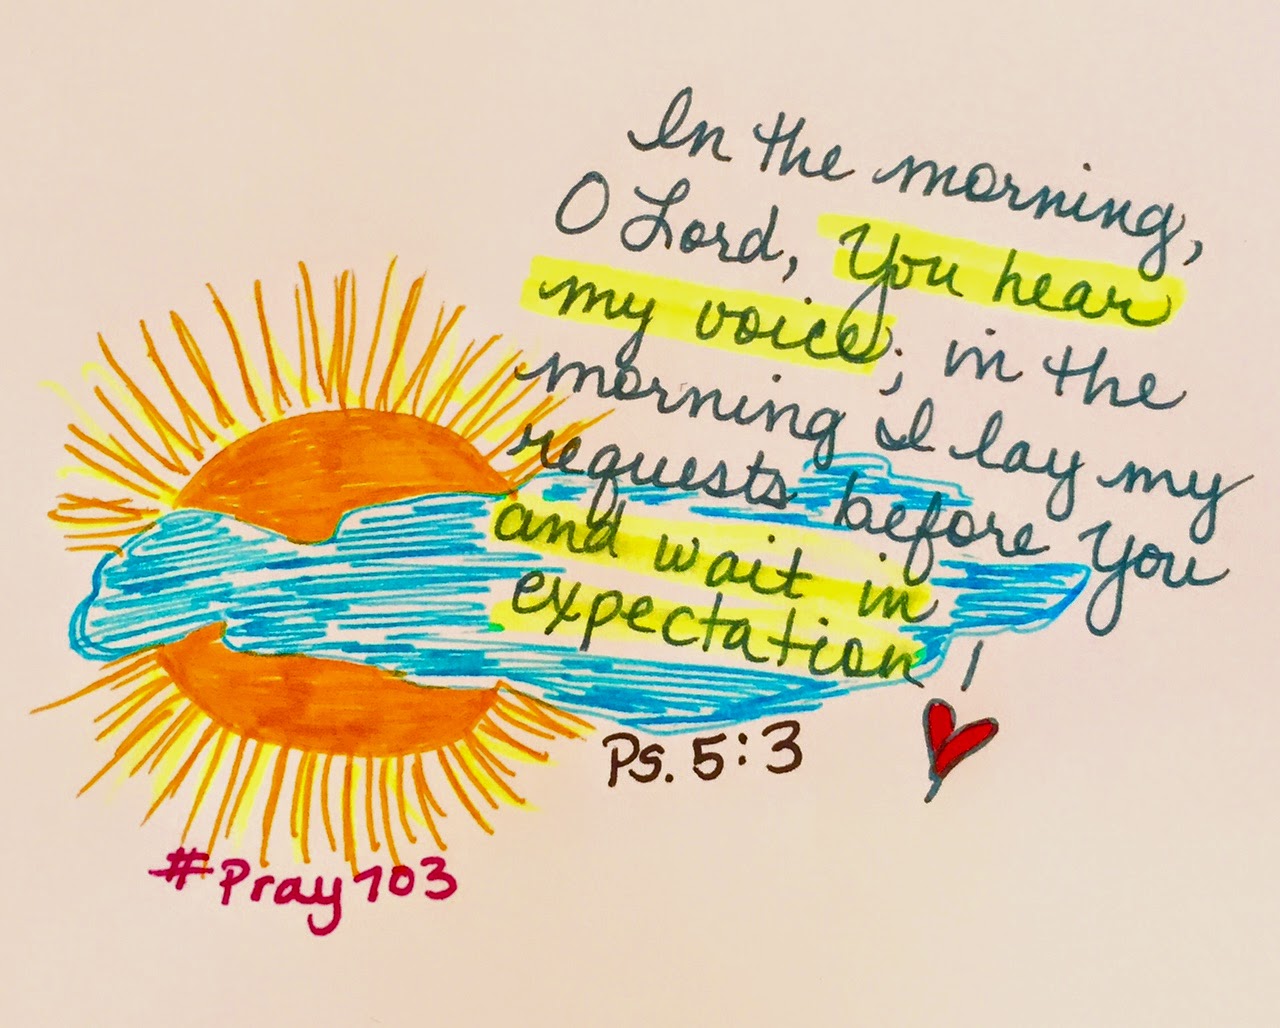 In the morning,
O Lord, You hear
my voice; in the
morning I lay my
requests before You
and wait in
expectation!
Ps. 5:3
#Pray703